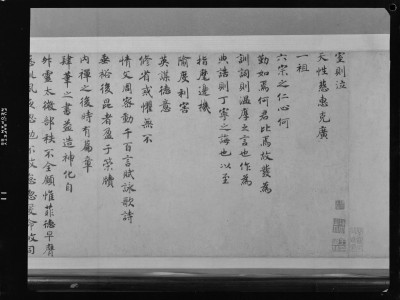 室則泣
天性慈惠克廣
一祖
六宗之仁心何
勤如焉何君比焉故發為
訓詞則温厚之言也作為
典誥則丁寧之誨也以至
指麾連機
隃度利害
英謀德意
修省戒懼無不
情文周密動千百言賦詠歌詩
垂裕後昆者盈于縈牘
内禪之後時有屬章
肆筆之書益造神化自
外靈太微部秩不全願惟菲德早膺